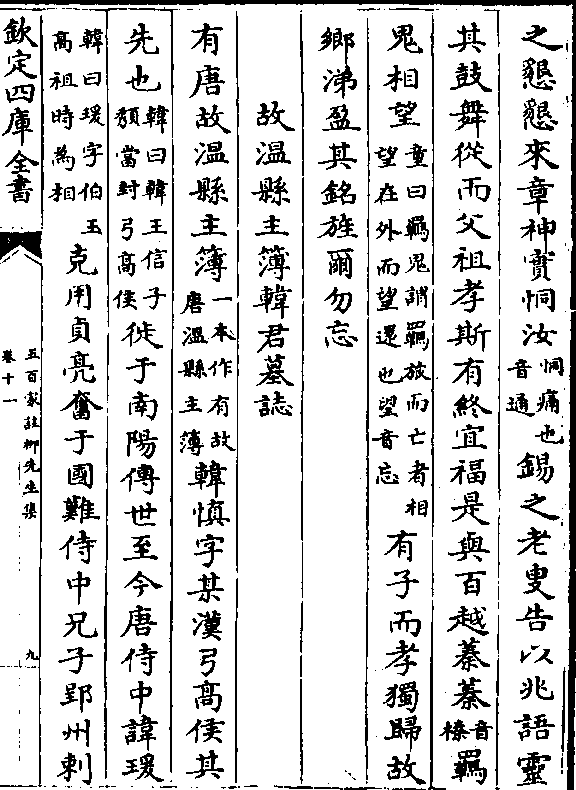 之懇懇來章神實恫汝恫痛也音通錫之老叟告以兆語靈
其鼓舞從而父祖孝斯有終宜福是與百越蓁蓁音榛羈
鬼相望童曰羈鬼謂羈旅而亡者相望在外而望還也望音忘有子而孝獨歸故
鄉涕盈其銘旌爾勿忘
故温縣主簿韓君墓誌
有唐故温縣主簿一本作有故唐溫縣主簿韓慎字某漢弓高侯其
先也韓曰韓王信子頽當封弓高侯徙于南陽傳世至今唐侍中諱瑗
韓曰瑗字伯玉高祖時為相克用貞亮奮于國難侍中兄子郢州刺
欽定四庫全書
五百家註柳先生集
卷十一
九